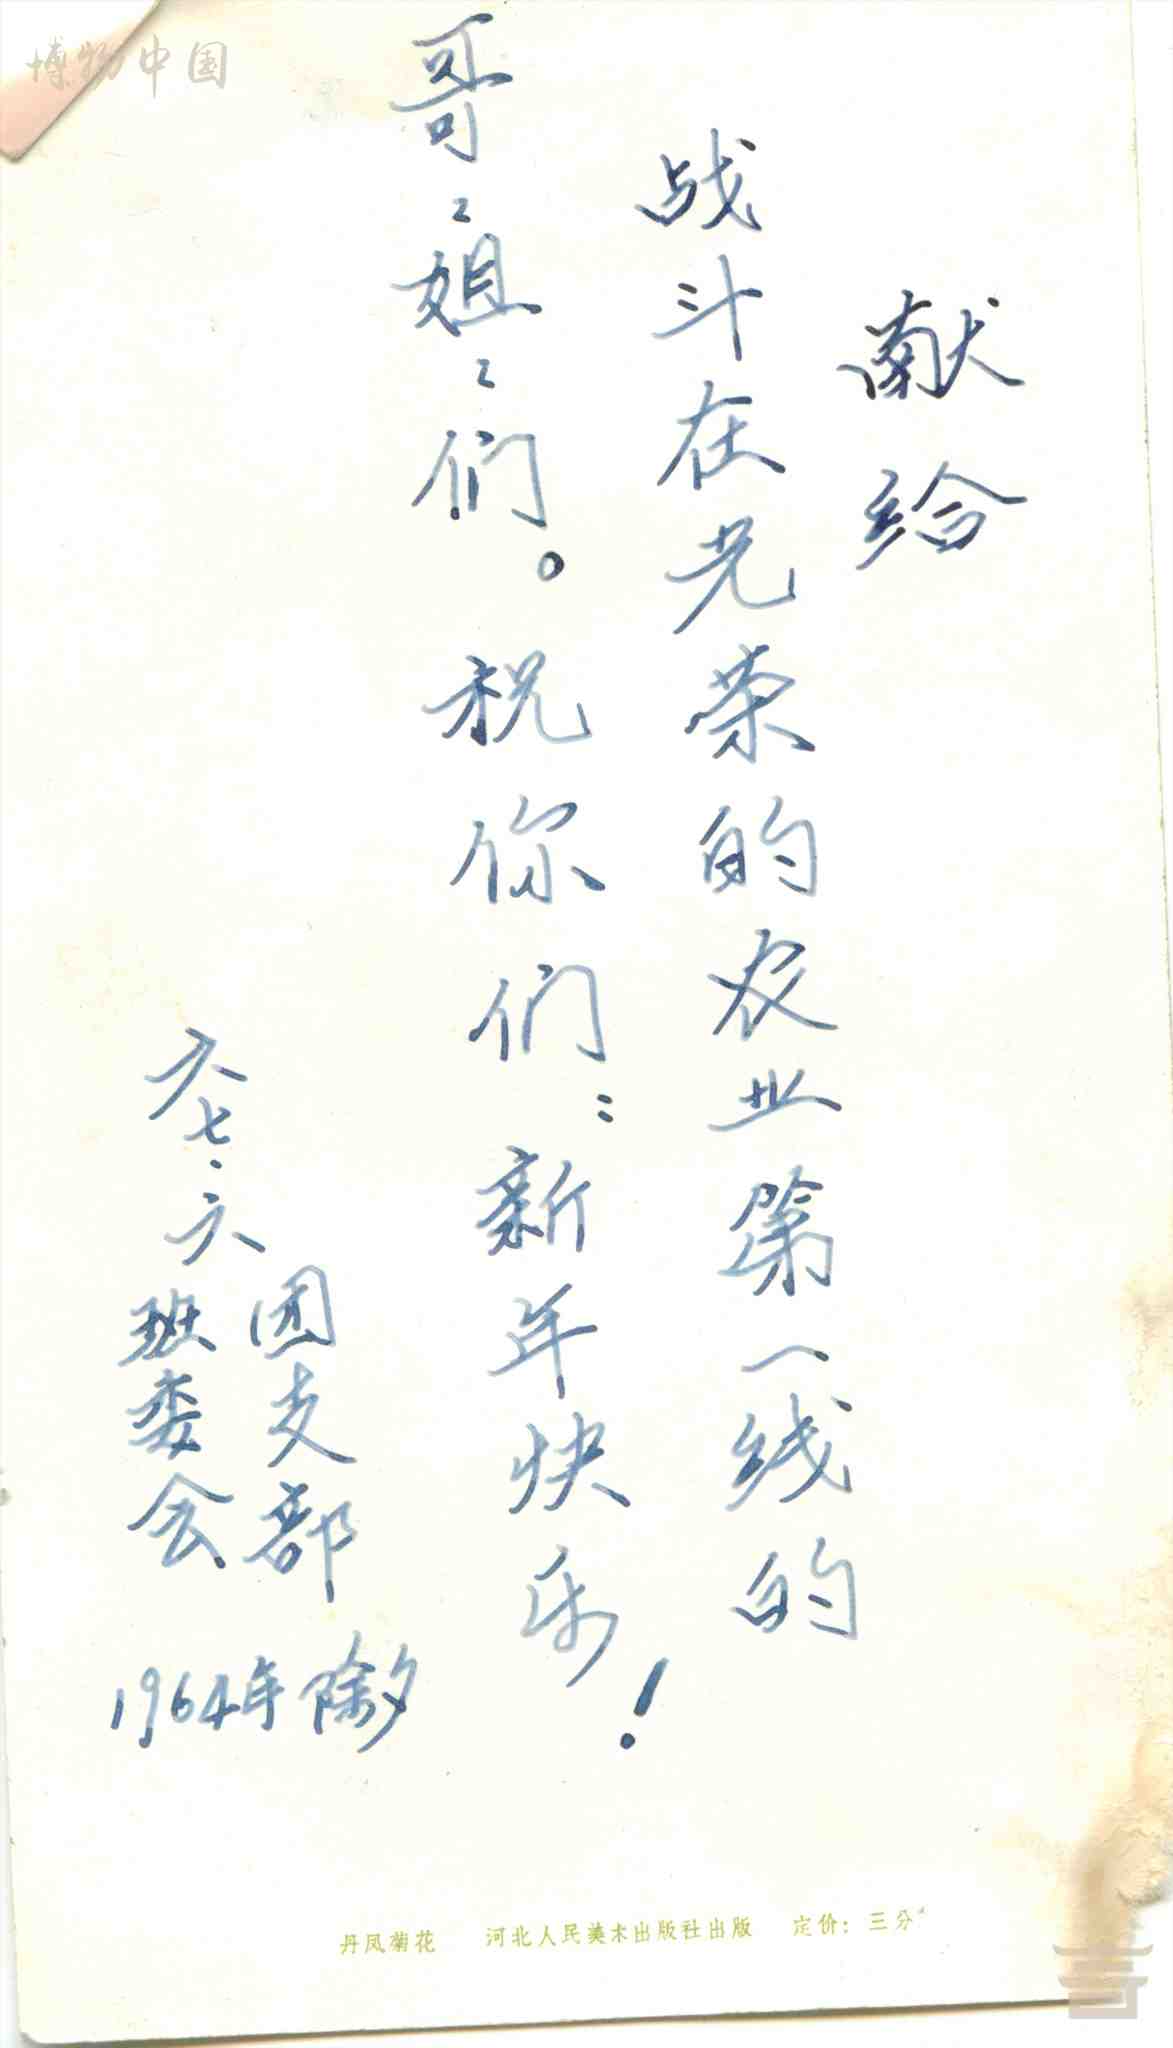 献给
战斗在光荣的农业第一线的
哥々姐々们。祝你们：新年快乐！
六七·六
团支部
班委会
1964年除夕
丹凤菊花 河北人民美术出版社出版 定价：三分
博物中国